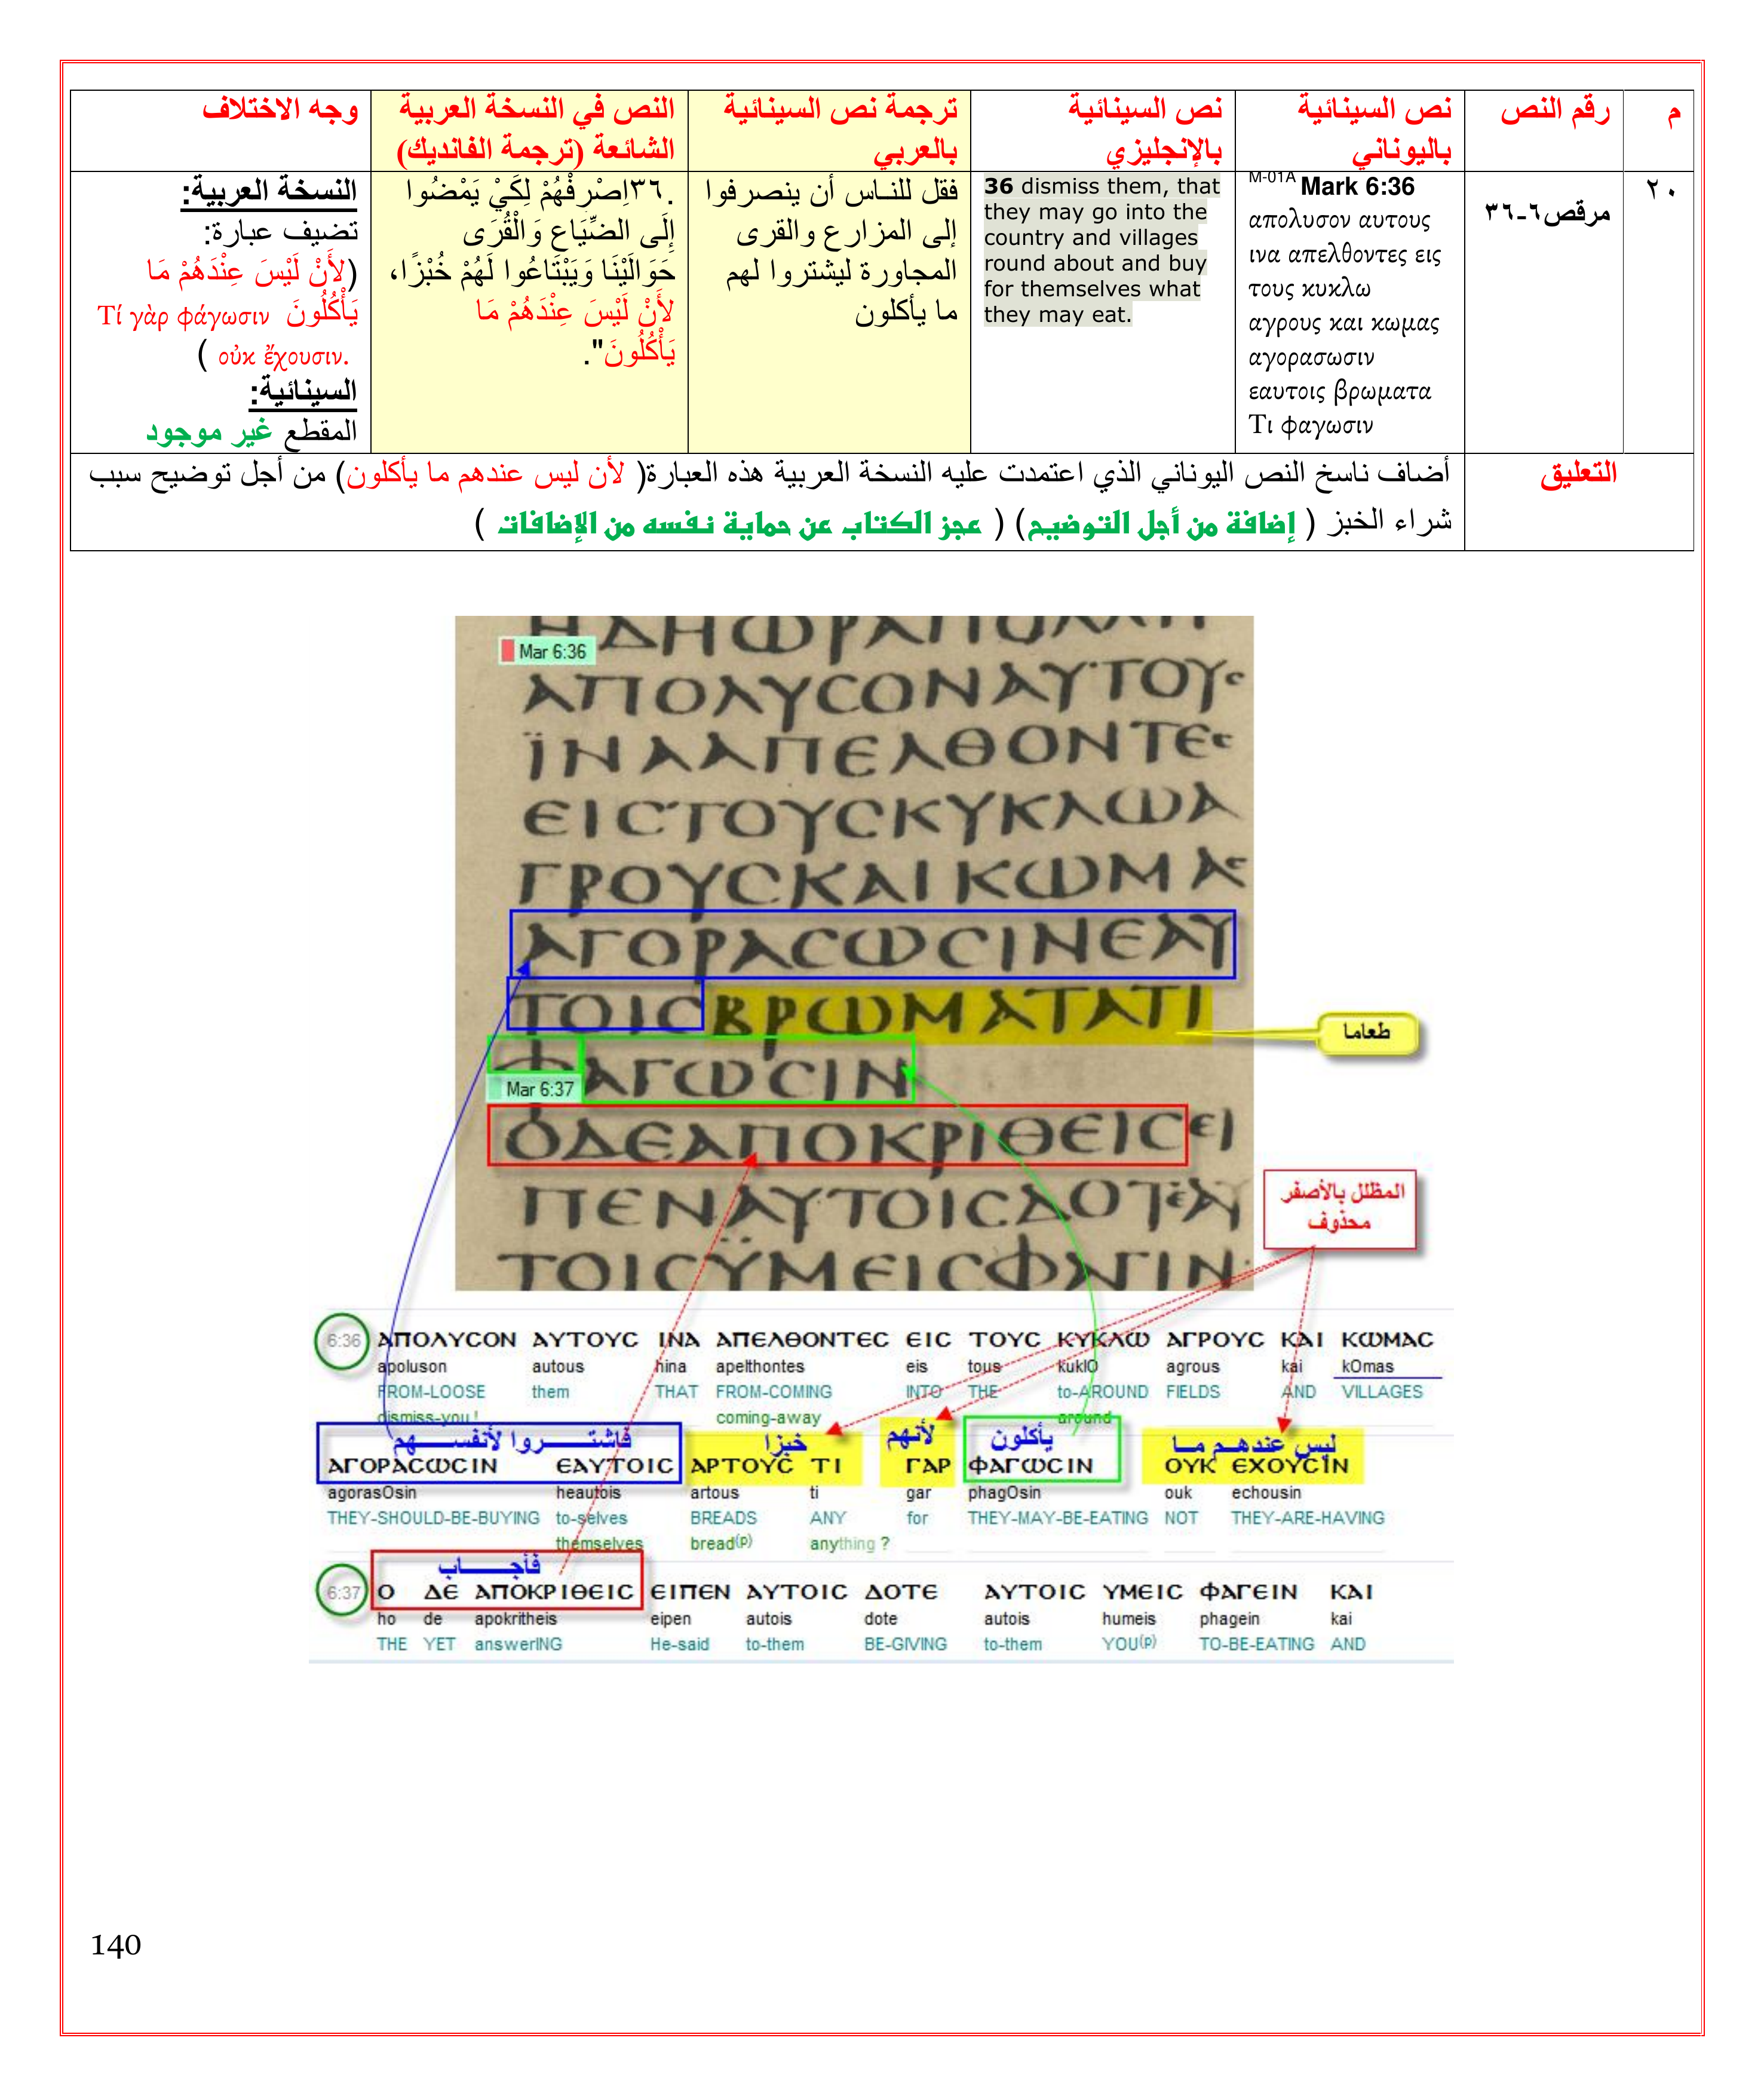 م
رقم النص
نص السينائية
باليوناني
نص السينائية
بالإنجليزي
ترجمة نص السينائية
بالعربي
النص في النسخة العربية
الشائعة (ترجمة الفانديك)
وجه الاختلاف
٢٠
مرقص٦-٣٦
M-01A Mark 6:36
απολυσον αυτους
ινα απελθοντες εις
τους κυκλω
αγρους και κωμας
αγορασωσιν
εαυτοις βρωματα
Τι φαγωσιν
36 dismiss them, that
they may go into the
country and villages
round about and buy
for themselves what
they may eat.
فقل للناس أن ينصرفوا
إلى المزارع والقرى
المجاورة ليشتروا لهم
ما يأكلون
.٣٦اِصْرِفْهُمْ لِكَيْ يَمْضُوا
إِلَى الضِّيَاعِ وَالْقُرَى
حَوَالَيْنَا وَيَبْتَاعُوا لَهُمْ خُبْزًا،
لأَنْ لَيْسَ عِنْدَهُمْ مَا
يَأْكُلُونَ".
النسخة العربية:
تضيف عبارة:
(لأَنْ لَيْسَ عِنْدَهُمْ مَا
يَأْكُلُونَ Τί γὰρ φάγωσιν
οὐκ ἔχουσιν. )
السينائية:
المقطع غير موجود
التعليق
أضاف ناسخ النص اليوناني الذي اعتمدت عليه النسخة العربية هذه العبارة( لأن ليس عندهم ما يأكلون) من أجل توضيح سبب
شراء الخبز ( إضافة من أجل التوضيح) ( عجز الكتاب عن حماية نفسه من الإضافات )
Mar 6:36
ΑΠΟΛΥCΟΝΑΥΤΟΥC
ΪΝΑΑΠΕΛΘΟΝΤΕC
ΕΙCΤΟΥCΚΥΚΛΩΑ
ΓΡΟΥCΚΑΙΚΩΜΑC
ΑΓΟΡΑCΩCΙΝΕΑΥ
ΤΟΙCΒΡΩΜΑΤΑΤΙ
طعاما
ΦΑΓΩCΙΝ
Mar 6:37
ΟΔΕΑΠΟΚΡΙΘΕΙCΕΙ
ΠΕΝΑΥΤΟΙCΔΟΤΕΑΥ
ΤΟΙCΫΜΕΙCΦΑΓΙΝ
المظلل بالأصفر
محذوف
6:36 ΑΠΟΛΥCΟΝ ΑΥΤΟΥC ΙΝΑ ΑΠΕΛΘΟΝΤΕC ΕΙC ΤΟΥC ΚΥΚΛΩ ΑΓΡΟΥC ΚΑΙ ΚΩΜΑC
apoluson autous hina apelthontes eis tous kuklO agrous kai kOmas
FROM-LOOSE them THAT FROM-COMING INTO THE to-AROUND FIELDS AND VILLAGES
dismiss-you ! coming-away around
فاشتروا لأنفسهم خبزا لأنهم يأكلون ليس عندهم ما
ΑΓΟΡΑCΩCΙΝ ΕΑΥΤΟΙC ΑΡΤΟΥC ΤΙ ΓΑΡ ΦΑΓΩCΙΝ ΟΥΚ ΕΧΟΥCΙΝ
agorasOsin heautois artous ti gar phagOsin ouk echousin
THEY-SHOULD-BE-BUYING to-selves BREADS ANY for THEY-MAY-BE-EATING NOT THEY-ARE-HAVING
themselves bread(p) anything ?
فأجاب
6:37 Ο ΔΕ ΑΠΟΚΡΙΘΕΙC ΕΙΠΕΝ ΑΥΤΟΙC ΔΟΤΕ ΑΥΤΟΙC ΥΜΕΙC ΦΑΓΕΙΝ ΚΑΙ
ho de apokritheis eipen autois dote autois humeis phagein kai
THE YET answerING He-said to-them BE-GIVING to-them YOU(p) TO-BE-EATING AND
140